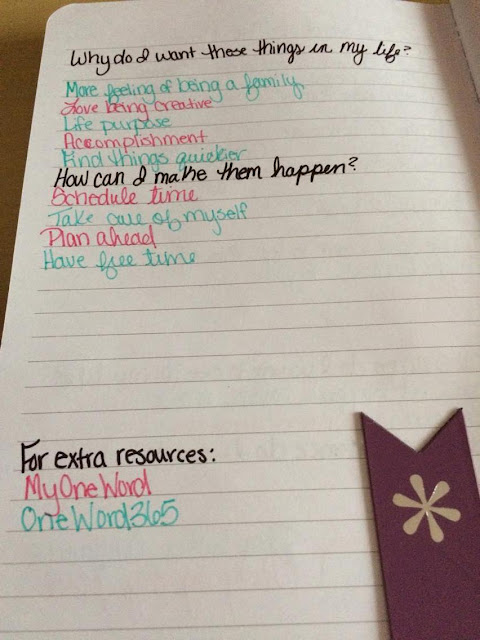 Why do I want these things in my life?
More feeling of being a family
Love being creative
Life purpose
Accomplishment
Find things quickier
How can I make them happen?
Schedule time
Take care of myself
Plan ahead
Have free time
For extra resources:
MyOneWord
OneWord365